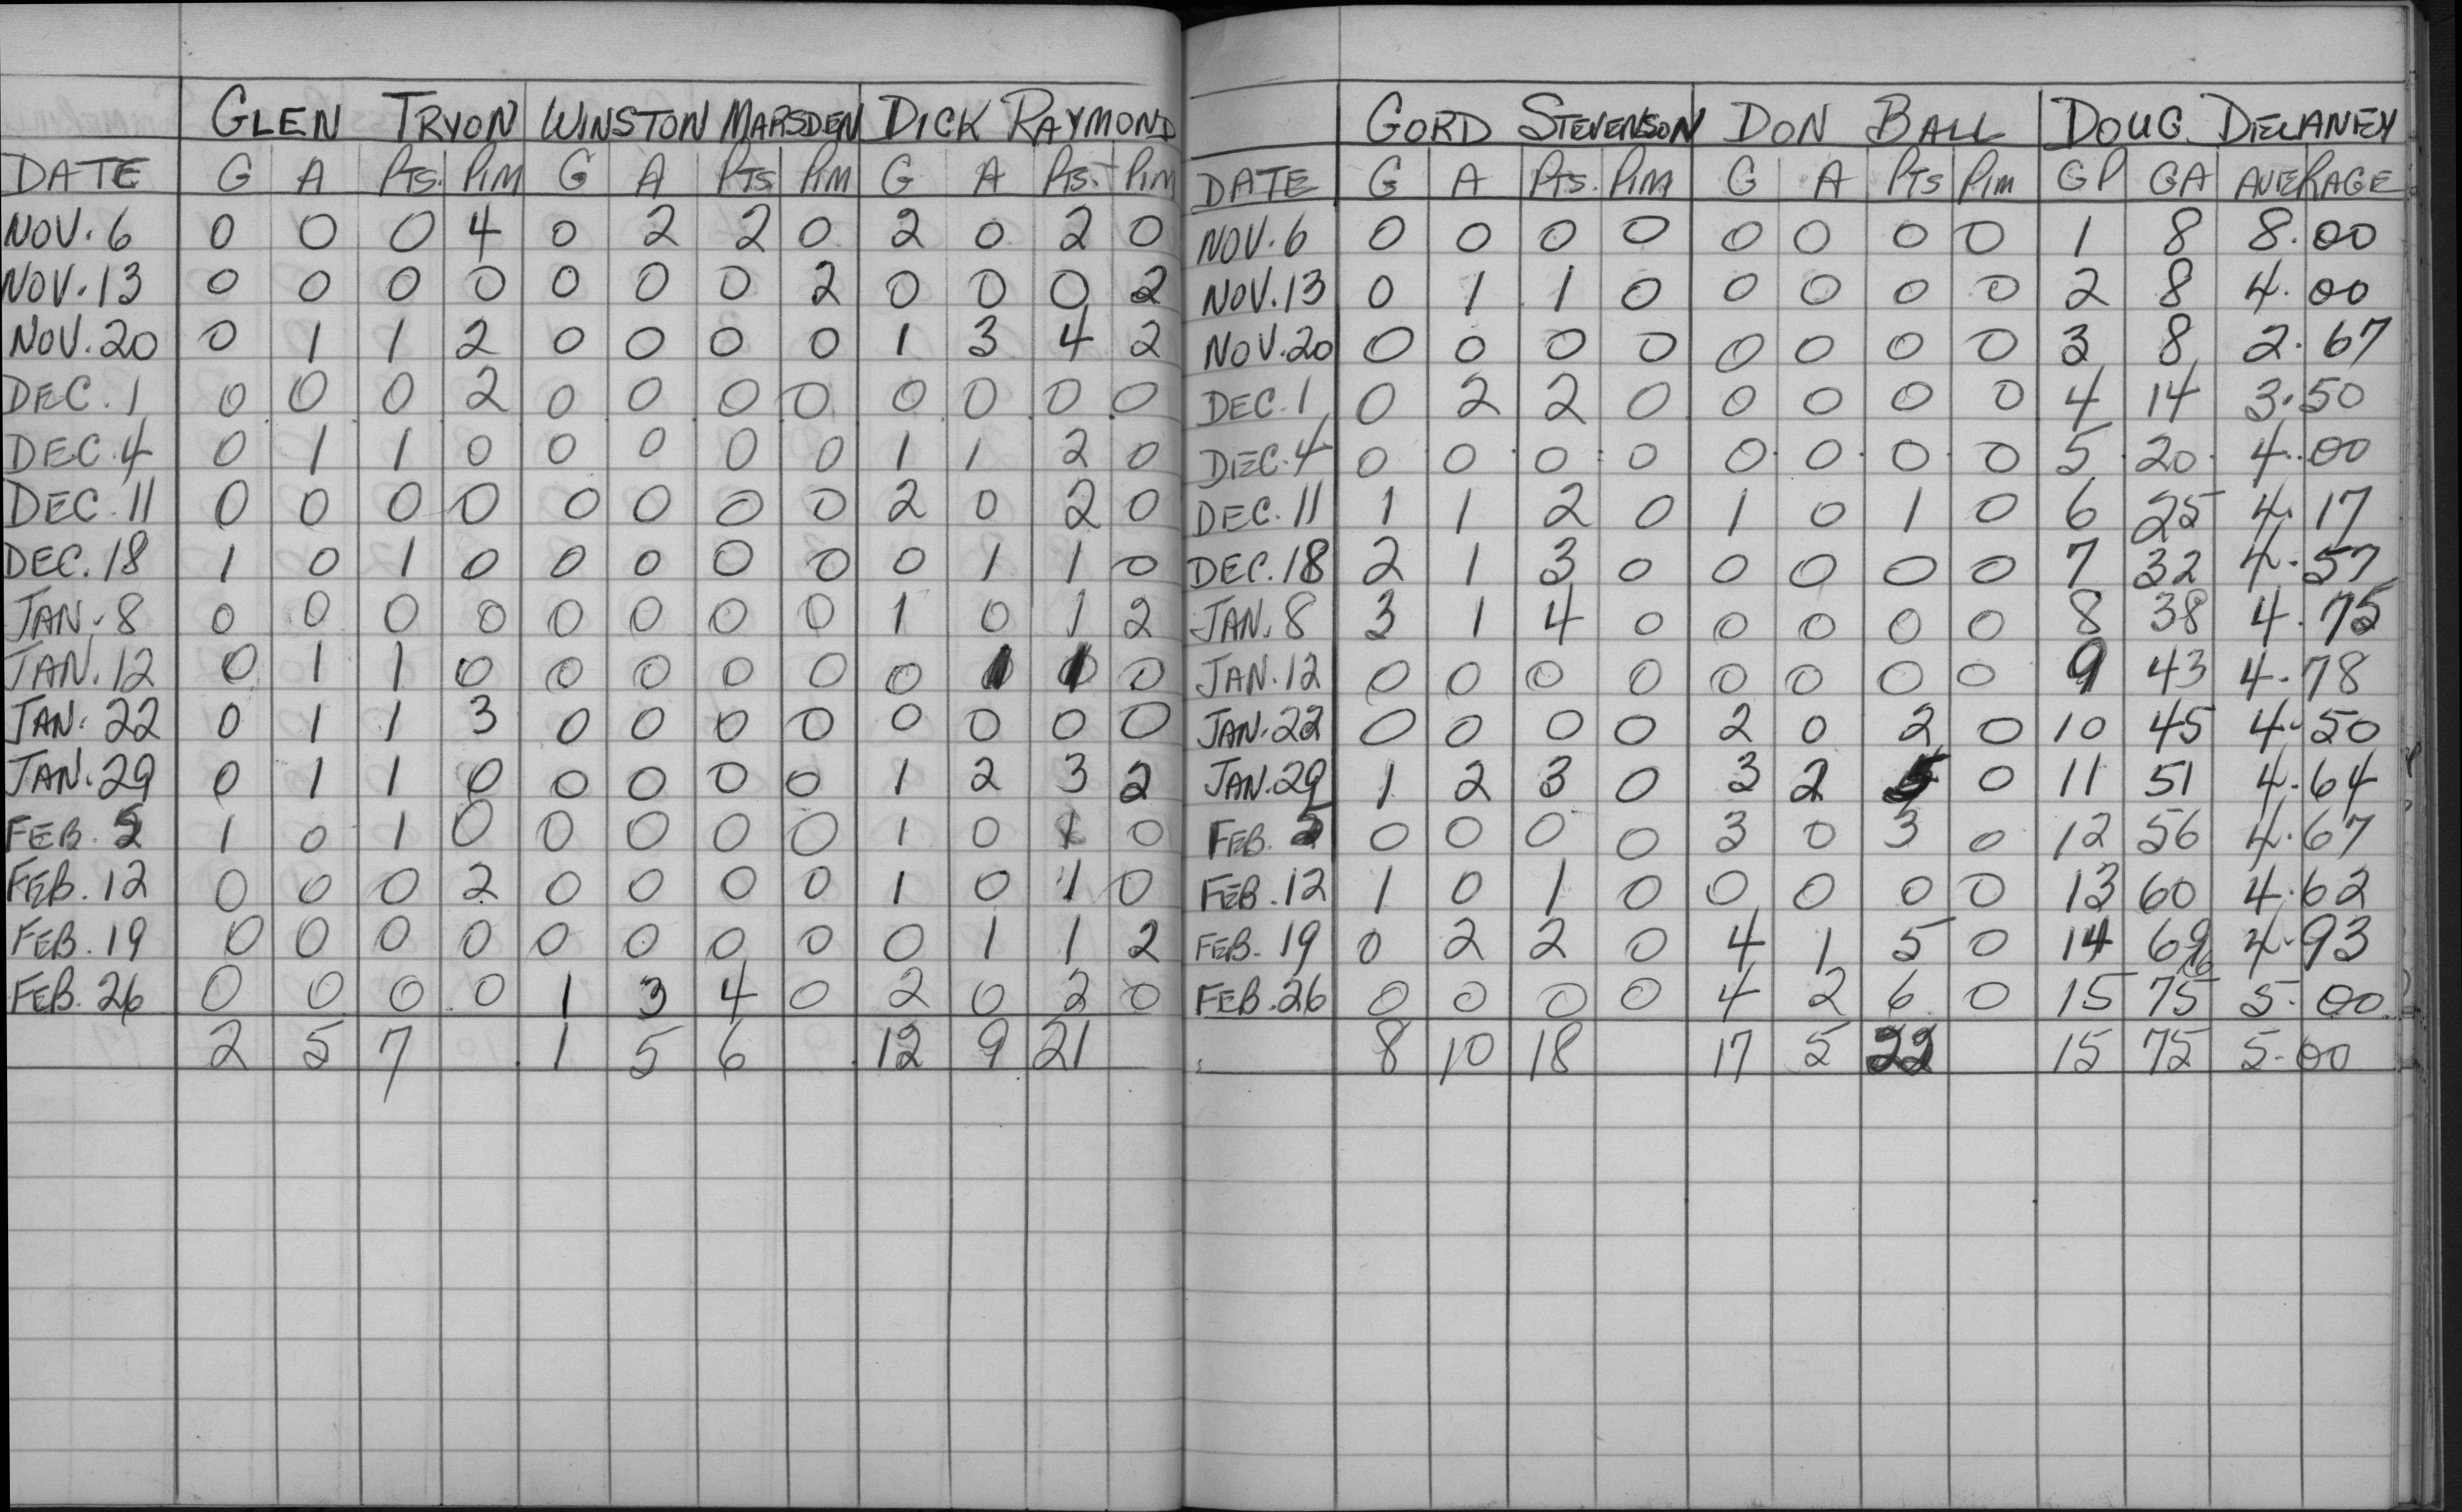 GLEN TRYON WINSTON MARSDEN DICK RAYMOND
DATE G A Pts. Pim G A Pts Pim G A Pts. Pim
NOV. 6 0 0 0 4 0 2 2 0 2 0 2 0
NOV. 13 0 0 0 0 0 0 0 2 0 0 0 2
NOV. 20 0 1 1 2 0 0 0 0 1 3 4 2
DEC. 1 0 0 0 2 0 0 0 0 0 0 0 0
DEC. 4 0 1 1 0 0 0 0 0 1 1 2 0
DEC. 11 0 0 0 0 0 0 0 0 2 0 2 0
DEC. 18 1 0 1 0 0 0 0 0 0 1 1 0
JAN. 8 0 0 0 0 0 0 0 0 1 0 1 2
JAN. 12 0 1 1 0 0 0 0 0 0 1 1 0
JAN. 22 0 1 1 3 0 0 0 0 0 0 0 0
JAN. 29 0 1 1 0 0 0 0 0 1 2 3 2
FEB. 5 1 0 1 0 0 0 0 0 1 0 1 0
FEB. 12 0 0 0 2 0 0 0 0 1 0 1 0
FEB. 19 0 0 0 0 0 0 0 0 0 1 1 2
FEB. 26 0 0 0 0 1 3 4 0 2 0 2 0
2 5 7 1 5 6 12 9 21
GORD STEVENSON DON BALL DOUG DELANEY
DATE G A Pts. Pim G A Pts Pim GP GA AVERAGE
NOV. 6 0 0 0 0 0 0 0 0 1 8 8.00
NOV. 13 0 1 1 0 0 0 0 0 2 8 4.00
NOV. 20 0 0 0 0 0 0 0 0 3 8 2.67
DEC. 1 0 2 2 0 0 0 0 0 4 14 3.50
DEC. 4 0 0 0 0 0 0 0 0 5 20 4.00
DEC. 11 1 1 2 0 1 0 1 0 6 25 4.17
DEC. 18 2 1 3 0 0 0 0 0 7 32 4.57
JAN. 8 3 1 4 0 0 0 0 0 8 38 4.75
JAN. 12 0 0 0 0 0 0 0 0 9 43 4.78
JAN. 22 0 0 0 0 2 0 2 0 10 45 4.50
JAN. 29 1 2 3 0 3 2 5 0 11 51 4.64
FEB. 5 0 0 0 0 3 0 3 0 12 56 4.67
FEB. 12 1 0 1 0 0 0 0 0 13 60 4.62
FEB. 19 0 2 2 0 4 1 5 0 14 69 4.93
FEB. 26 0 0 0 0 4 2 6 0 15 75 5.00
8 10 18 17 5 22 15 75 5.00